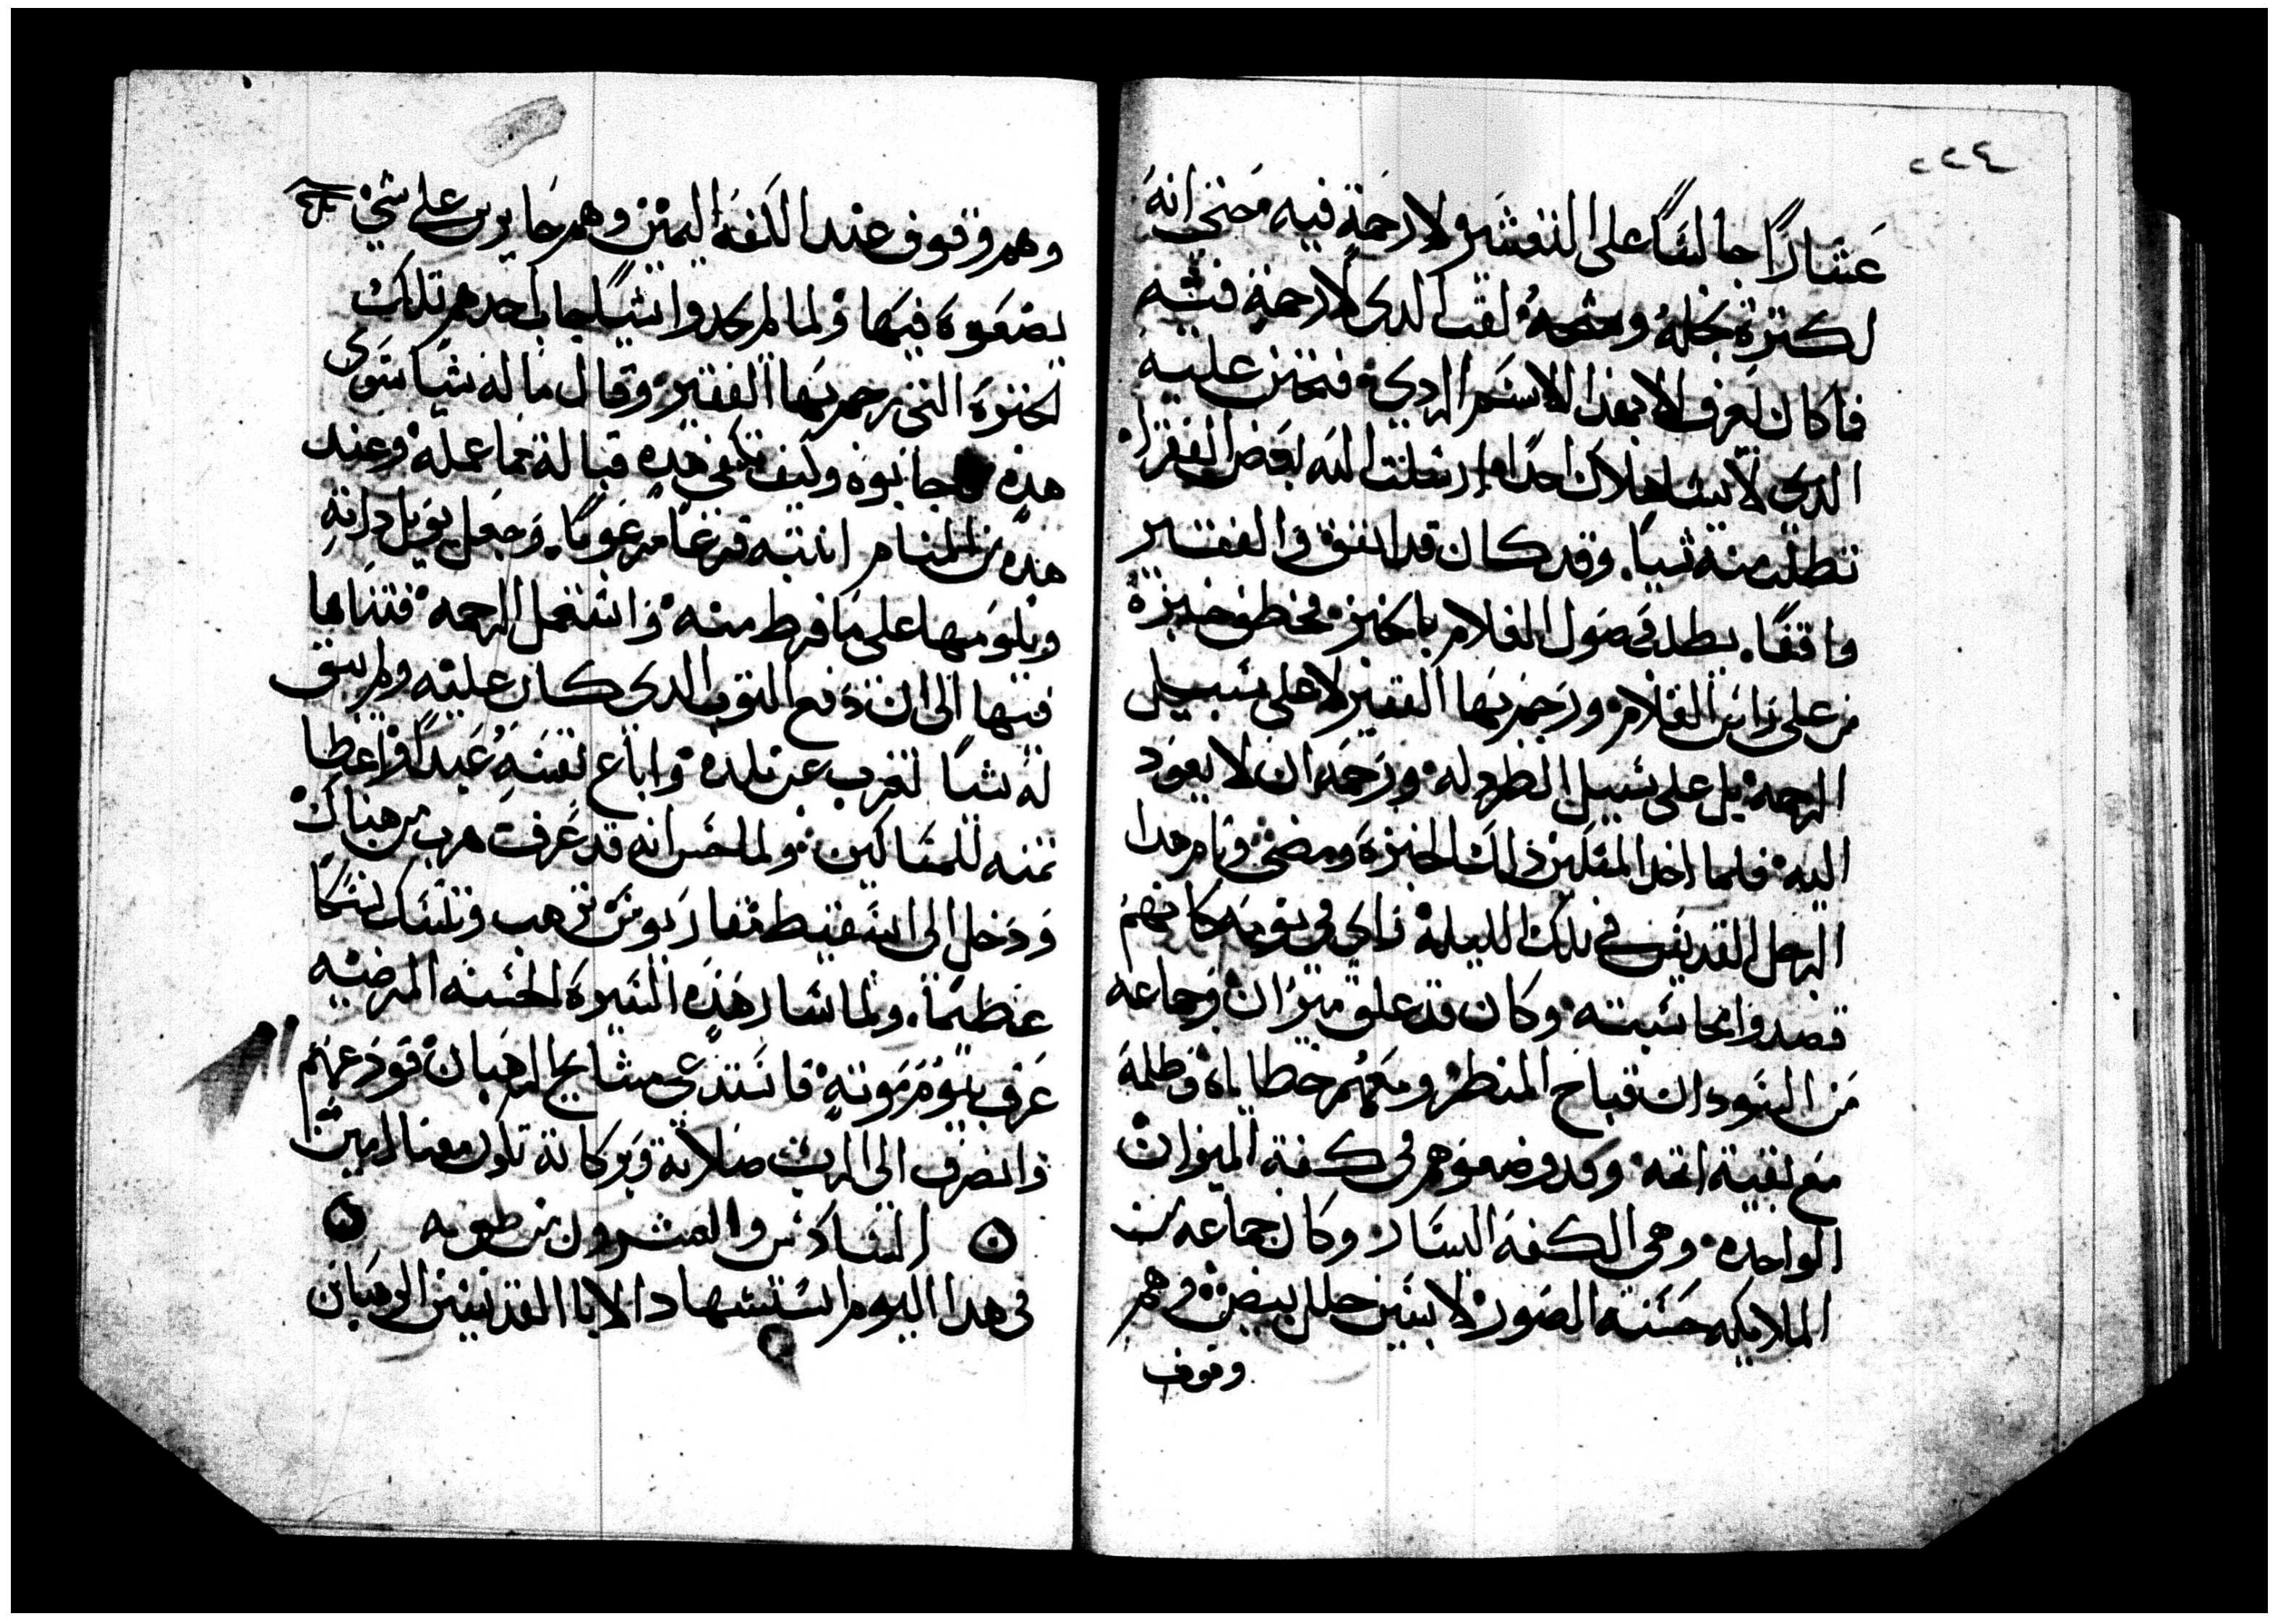 ٢٢٤
عشارًا جالسًا على القشر ولا رحمة فيه حتى انه
لكترة بخله وشحه لقب الدي لا رحمة فيه
فما كان يعرف الا بهذا الاسم الردي فتحنن عليه
الدي لا يشا هلاك احدًا وارسلت اليه بعض الفقرا
تطلب منه شيا. وقد كان قد اتفق والفقير
واقفًا. يطلب وصول الغلام بالخبز فخطف خبزة
من على راس الغلام ورجم بها الفقير لا على سبيل
الرحمه بل على سبيل الطرد له ورجمه ان لا يعود
اليه فلما اخد المسكين ذلك الخبزة ومضى ونام هدا
الرجل القديس في تلك الليله راي في نومه كانهم
قصدوا محاسبته وكان قد علق ميزان وجماعه
من السودان قباح المنظر ومعهم خطاياه وظلمه
مع بقية اتمه وقد وضعوهم في كفة الميزان
الواحده وهي الكفه اليسار وكان جماعه من
الملايكه حسنه الصور لابسين حلل بيض وهم
وقوف
وهم وقوف عند الكفة اليمين وهم حايرين على شي
يضعوه فيها ولما لم يجدوا شيا جاب احدهم تلك
الخبزة التي رجم بها الفقير وقال ما له شيا سوى
هده جانبوه وكيف تكفي هده قبالة ما عمله وعند
هده من المنام انتبه فزعًا مرعوبًا. وجعل يويل داته
ويلومها على ما فرط منه واستعمل الرحمه فتناها
فيها الى ان دفع التوب الدي كان عليه ولم يبق
له شيا تغرب عن بلده واباع نفسه عبدًا واعطا
تمنه للمساكين ولما حس انه قد عرفت هرب من هناك
ودخل الى اسقيط مقاريوس ترهب وتنسك نسكًا
عظيمًا. ولما سار هذه السيرة الحسنه المرضيه
عرف بيوم موته فاستدعي مشايخ الرهبان فودعهم
وانصرف الى الرب صلاته وبركاته تكون معنا امين
السادس والعشرون من طوبه
في هدا اليوم استشهاد الابا القديسين الرهبان